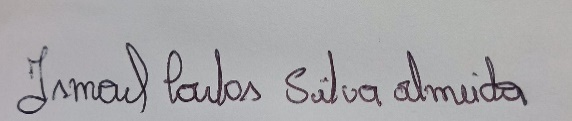 Ismael Carlos Silva almeida